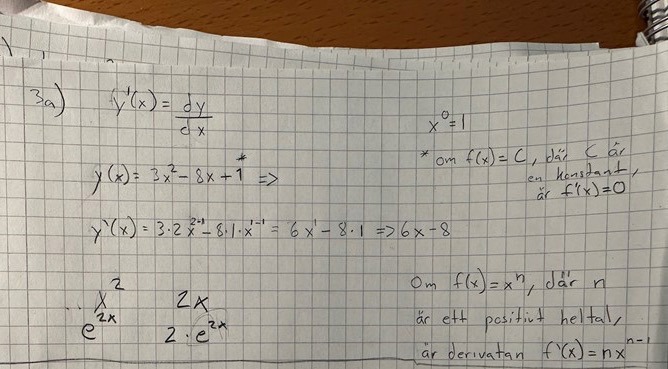 3a) y'(x) = dy/dx
x⁰=1
* om f(x) = C, där C är
en konstant,
är f'(x)=0
y(x) = 3x² - 8x + 1* =>
y'(x) = 3·2x²⁻¹ - 8·1·x¹⁻¹ = 6x¹ - 8·1 => 6x-8
x² 2x
e²ˣ 2·e²ˣ
Om f(x) = xⁿ, där n
är ett positivt heltal,
är derivatan f'(x) = nxⁿ⁻¹